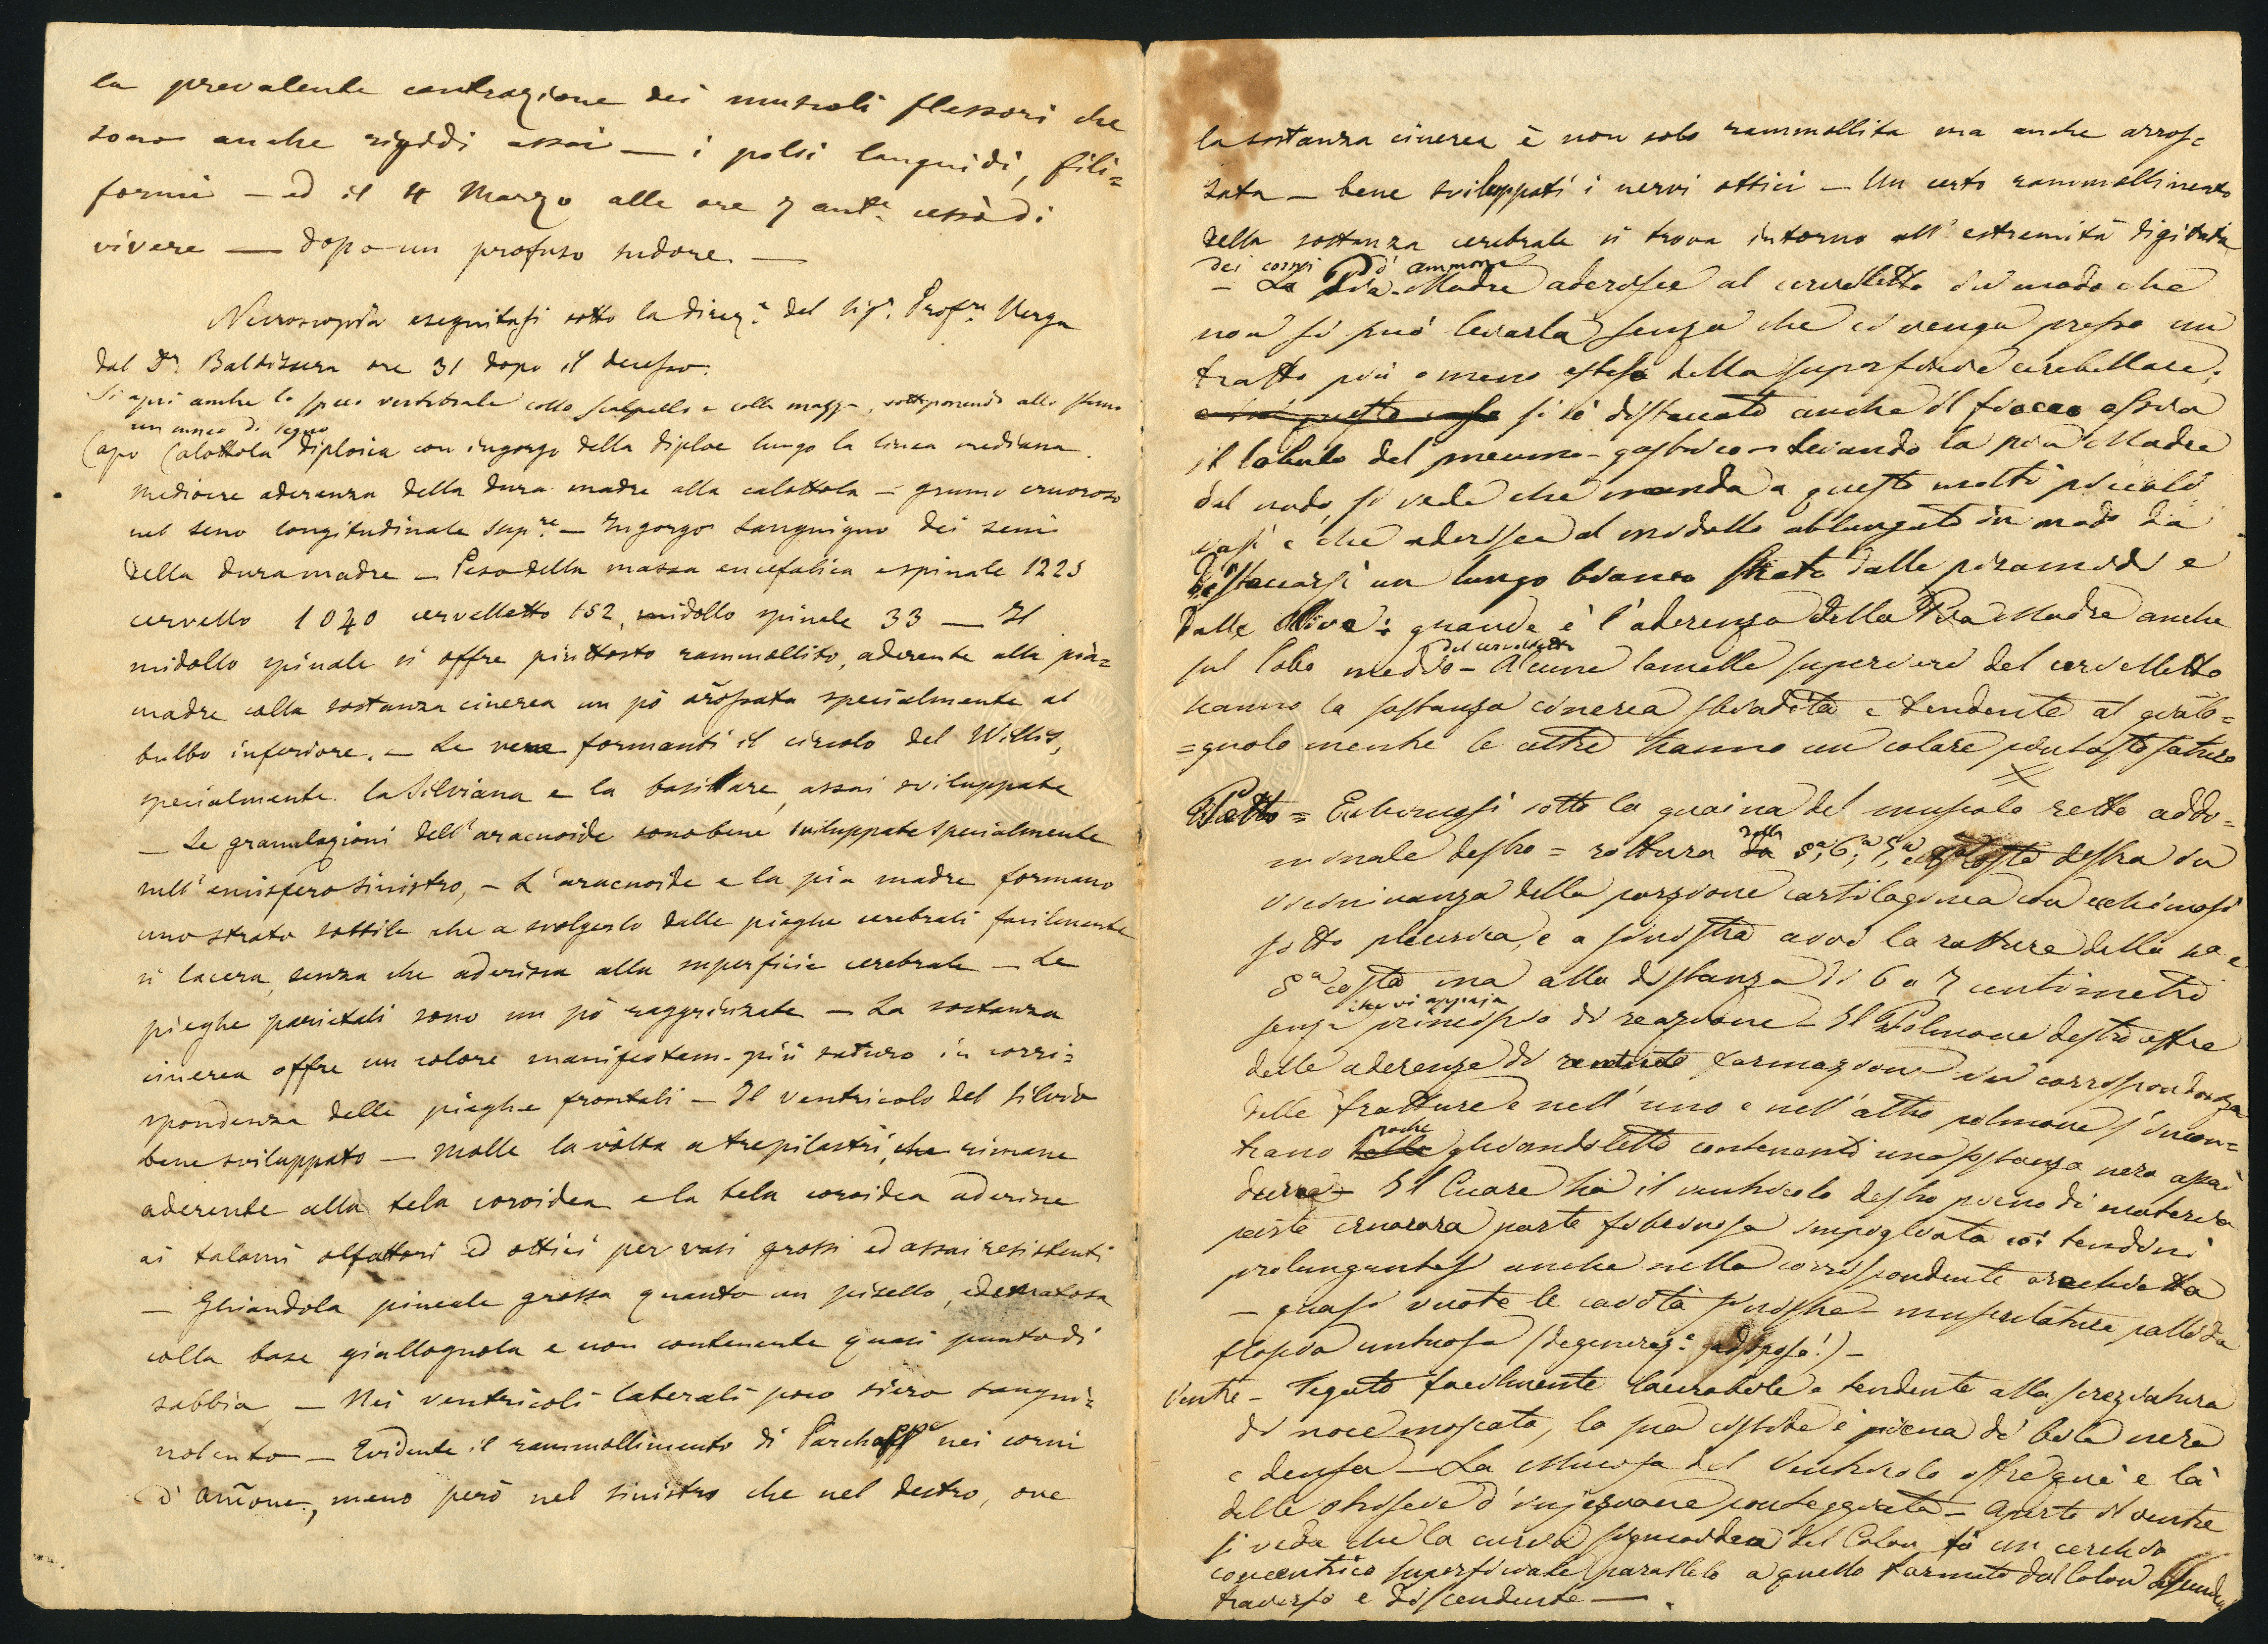 la prevalente contrazione dei muscoli flessori che
sono anche rigidi assai — i polsi languidi, fili=
formi — ed il 4 Marzo alle ore 7 antᵉ cessò di
vivere — dopo un profuso sudore —
Necroscopia eseguitasi sotto la direzᵉ del Sigʳ Profʳᵉ Verga
dal Dʳ Baldizzera ore 31 dopo il decesso.
Si aprì anche lo speco vertebrale collo scalpello e colla mazza, sottoponendo allo sterno
un cuneo di legno
Capo Calottola diploica con ingorgo della diploe lungo la linea mediana.
Mediocre aderenza della dura madre alla calottola — grumo cruoroso
nel seno longitudinale supʳᵉ — Ingorgo sanguigno dei seni
della dura madre — Peso della massa encefalica e spinale 1225
cervello 1040 cervelletto 152, midollo spinale 33 — Il
midollo spinale si offre piuttosto rammollito, aderente alla pia=
madre colla sostanza cinerea un pò arrossata specialmente al
bulbo inferiore. — Le vene formanti il circolo del Willis,
specialmente la Silviana e la basillare, assai sviluppate
— Le granulazioni dell'aracnoide sono bene sviluppate specialmente
nell'emisfero sinistro, — L'aracnoide e la pia madre formano
uno strato sottile che a svolgerlo dalle pieghe cerebrali facilmente
si lacera, senza che aderisca alla superficie cerebrale — Le
pieghe parietali sono un pò raggrinzate — La sostanza
cinerea offre un colore manifestam. più saturo in corri=
spondenza delle pieghe frontali — Il ventricolo del Silvio
bene sviluppato — Molle la vòlta a tre pilastri, che rimane
aderente alla tela coroidea e la tela coroidea aderisce
ai talami olfattori ed ottici per vasi grossi ed assai resistenti
— Ghiandola pineale grossa quanto un pisello, edematosa
colla base giallognola e non contenente quasi punto di
sabbia — Nei ventricoli laterali poco siero sangui=
nolento — Evidente il rammollimento di Parchappe nei corni
d'Am̃one, meno però nel sinistro che nel destro, ove
la sostanza cinerea è non solo rammollita ma anche arros=
sata — bene sviluppati i nervi ottici — Un certo rammollimento
della sostanza cerebrale si trova intorno all'estremità digitata
dei corni d'ammone
— La Pia Madre aderisce al cervelletto in modo che
non si può levarla senza che ci venga presso un
tratto più o meno esteso della superficie cerebellare;
e in questo caso si è distaccato anche il fiocco ossia
il lobulo del pneumo-gastrico — levando la pia Madre
dal nodo si vede che manda a questo molti piccoli
vasi e che aderisce al midollo allungato in modo da
distaccarsi un lungo bianco strato dalle piramidi e
dalle Olive: grande è l'aderenza della Pia Madre anche
del cervelletto
sul lobo medio — Alcune lamelle superiori del cervelletto
hanno la sostanza cinerea sbiadita e tendente al giallo=
=gnolo mentre le altre hanno un colore piuttosto saturo
Petto = Echimosi sotto la guaina del muscolo retto addo=
minale destro = rottura dalla 5ª, 6ª, 7ª, e costa destra in
vicinanza della porzione cartilaginea con echimosi
sotto pleurica, e a sinistra avvi la rottura della 4ª e
5ª costa ma alla distanza di 6 o 7 centimetri
che vi appaja
senza principio di reazione — Il Polmone destro offre
delle aderenze di recente formazione in corrispondenza
delle fratture e nell'uno e nell'altro polmone s'incon=
poche
trano delle ghiandolette contenenti una sostanza nera assai
dura — Il Cuore ha il ventricolo destro pieno di materia
parte cruorosa parte fibrinosa impigliata coi tendini
prolungantesi anche nella corrispondente orecchietta
— quasi vuote le cavità sinistre — muscolatura pallida
flascia untuosa (degenerazᵉ adiposa!) —
Ventre — Fegato facilmente lacerabile e tendente alla screziatura
di noce moscata, la sua cistide è piena di bile nera
e densa — La Mucosa del Ventricolo offre quà e là
delle striscie d'injezione punteggiata — Aperto il ventre
si vede che la curva sigmoidea del Colon fà un cerchio
concentrico superficiale parallelo a quello formato dal Colon ascendente
traverso e discendente —